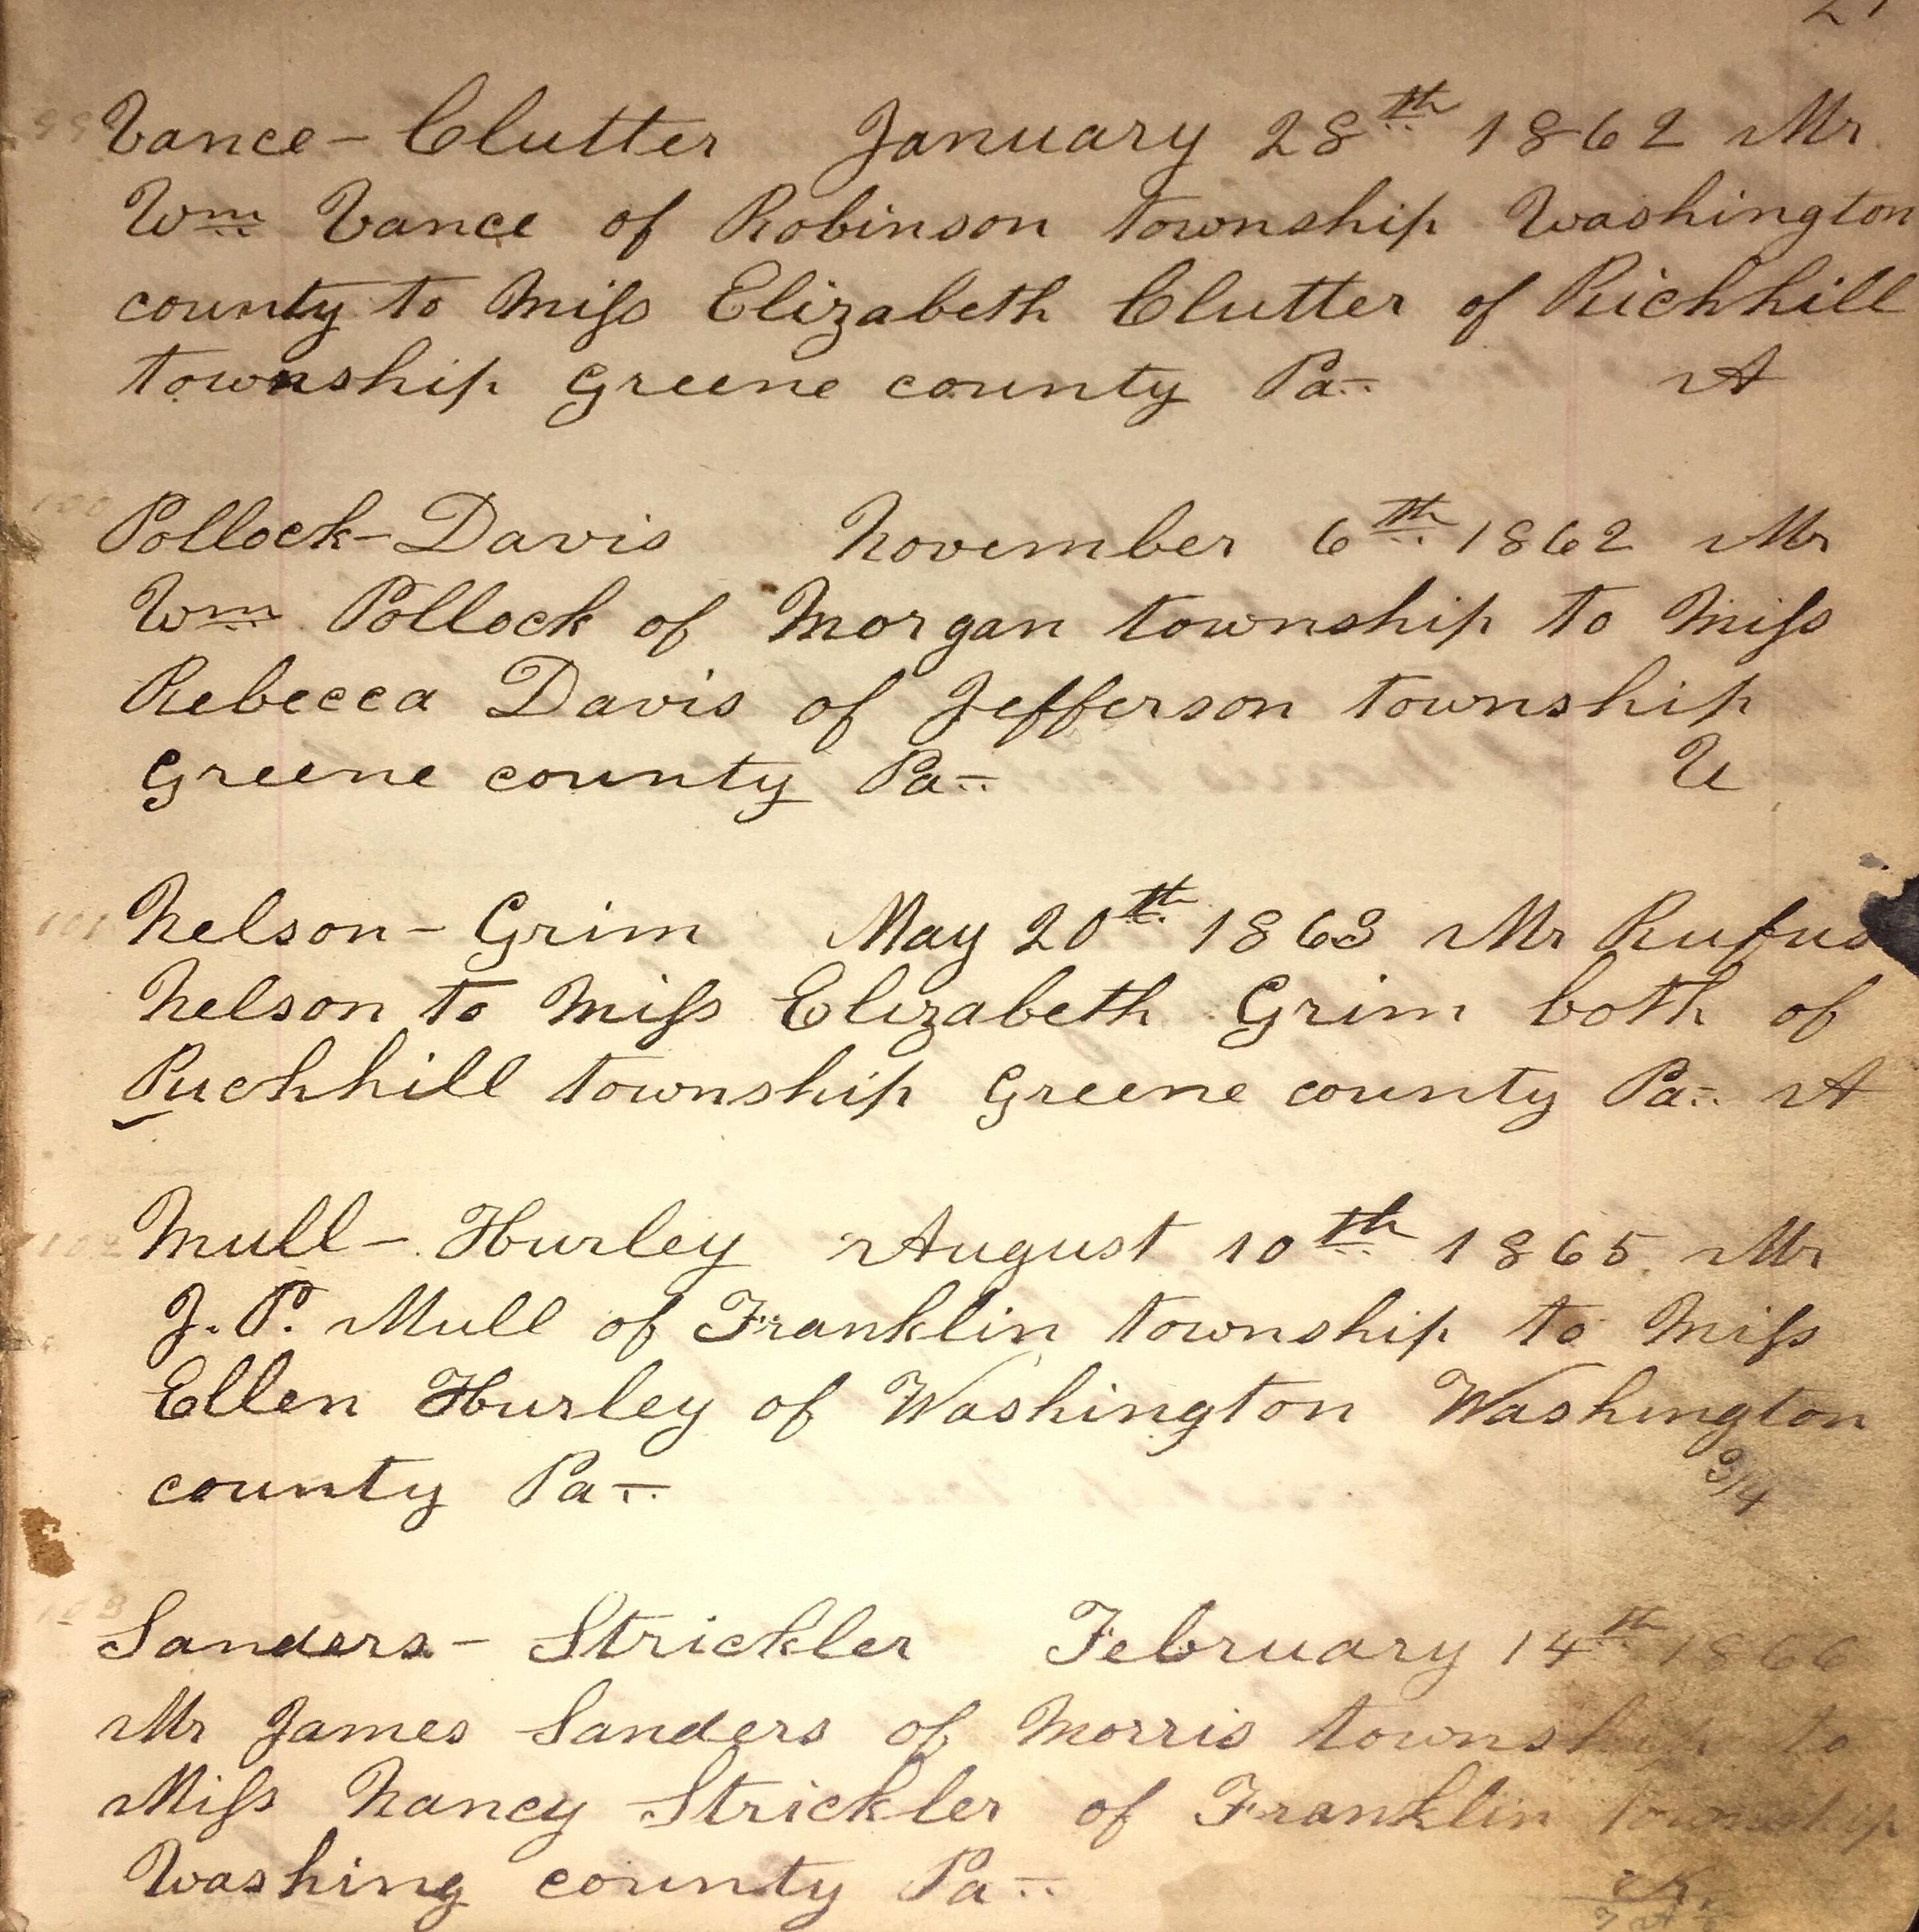 99 Vance - Clutter January 28th 1862 Mr
Wm Vance of Robinson township Washington
county to Miss Elizabeth Clutter of Richhill
township Greene county Pa A
100
Pollock - Davis November 6th 1862 Mr
Wm Pollock of Morgan township to Miss
Rebecca Davis of Jefferson township
Greene county Pa U
101 Nelson - Grim May 20th 1863 Mr Rufus
Nelson to Miss Elizabeth Grim both of
Ruchhill township Greene county Pa A
102 Mull - Hurley August 10th 1865 Mr
J. P. Mull of Franklin township to Miss
Ellen Hurley of Washington Washington
county Pa 3/4
103
Sanders - Strickler February 14th 1866
Mr James Sanders of Morris township to
Miss Nancy Strickler of Franklin township
Washing county Pa